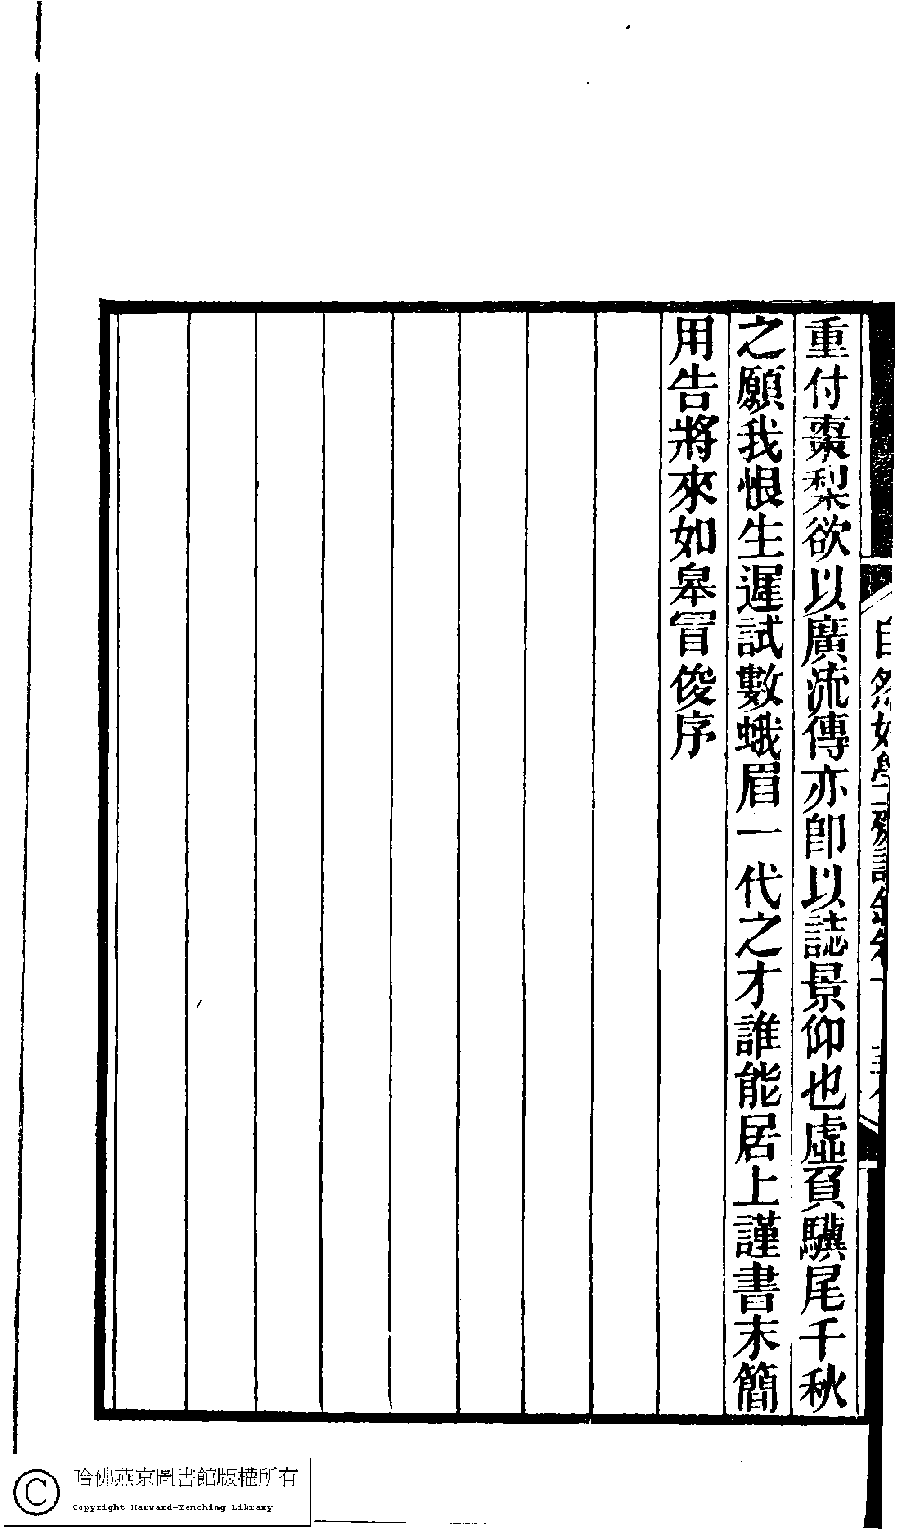 重付棗棃欲以廣流傳亦卽以誌景仰也虛負驥尾千秋
之願我恨生遲試數蛾眉一代之才誰能居上謹書末簡
用告將來如皋冒俊序
自然好學齋詩鈔卷十
哈佛燕京圖書館版權所有
Copyright Harvard-Yenching Library